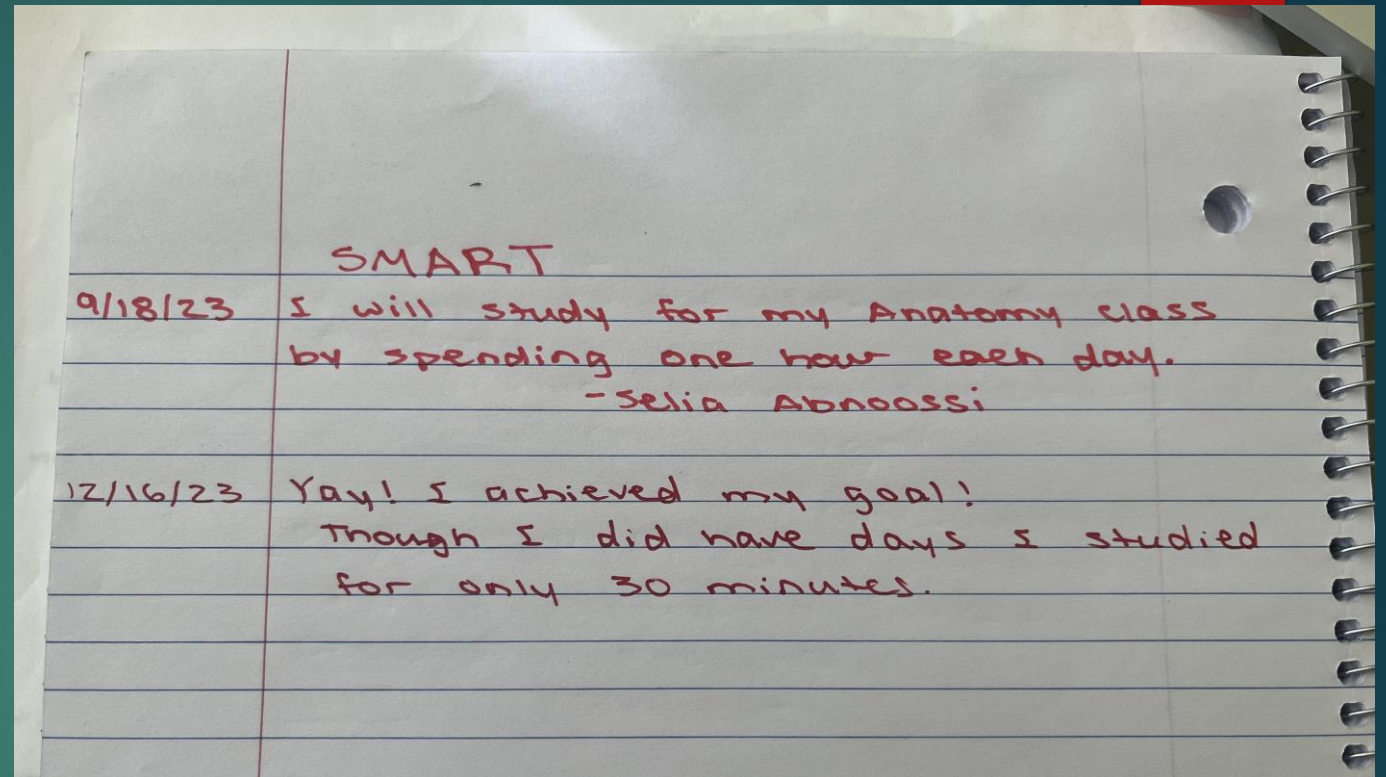 SMART
9/18/23 I will study for my Anatomy class
by spending one hour each day.
-Selia Abnoossi
12/16/23 Yay! I achieved my goal!
Though I did have days I studied
for only 30 minutes.